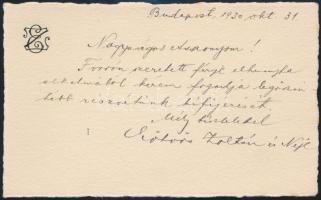 Budapest, 1930 okt. 31.
Nagyságos Asszonyom!
Forrón szeretett férje elhunyta
alkalmából kérem fogadja legőszin
tébb részvétünk kifejezését
Mély tisztelettel
Eötvös Zoltán és Neje